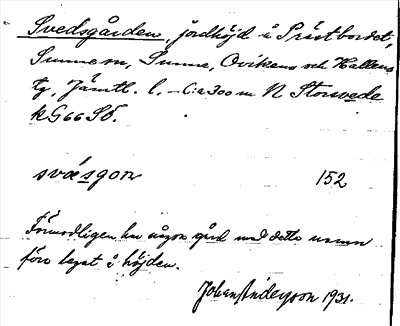 Svedsgården, jordhöjd å Prästbordet,
Sunne sn, Sunne, Ovikens och Hallens
tg, Jämtl. l. – C:a 300 m N Storsvede
k G 66 Sö.
svæsgorn 152
Förmodligen har någon gård med detta namn
förr legat å höjden.
Johan Anderson 1931.